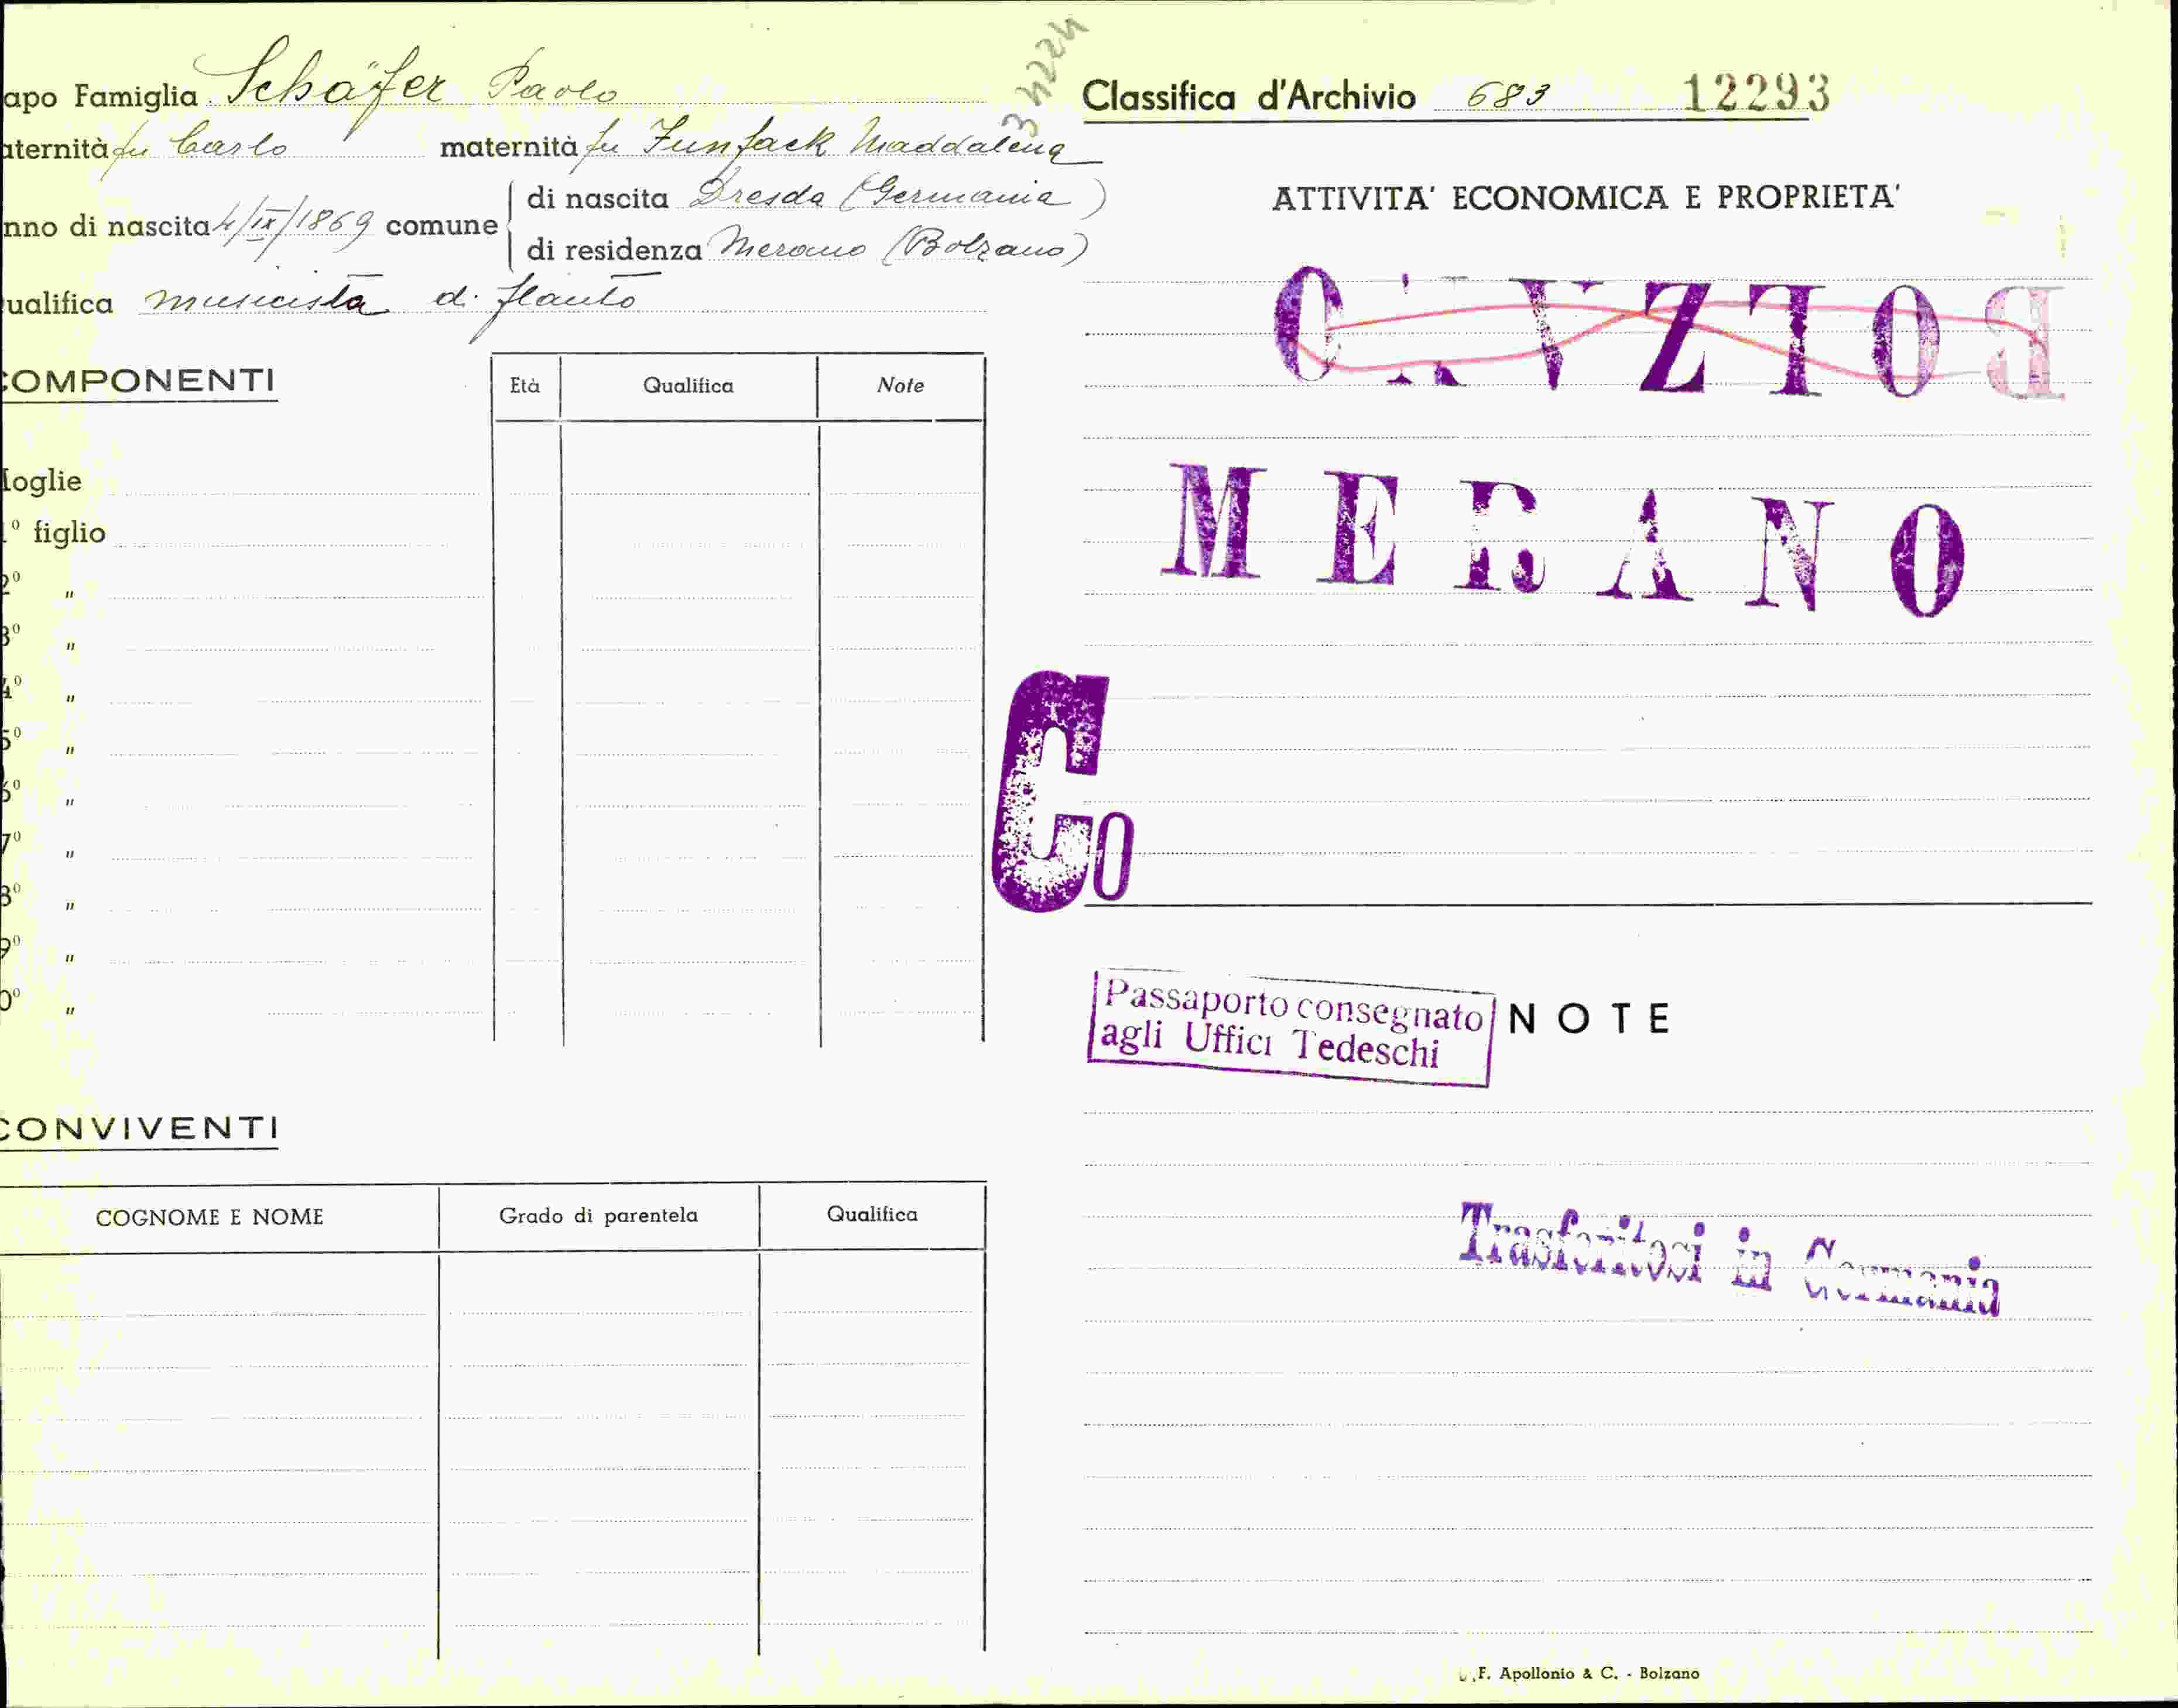 apo Famiglia Schäfer Paolo
aternità fu Carlo maternità fu Funfack Maddalena
nno di nascita 4/IX/1869 comune
di nascita Dresda (Germania)
di residenza Merano (Bolzano)
ualifica musicista di flauto
34224
COMPONENTI
Età Qualifica Note
Moglie
1° figlio
2° "
3° "
4° "
5° "
6° "
7° "
8° "
9° "
0° "
CONVIVENTI
COGNOME E NOME Grado di parentela Qualifica
Classifica d'Archivio 683 12293
ATTIVITA' ECONOMICA E PROPRIETA'
BOLZANO
MERANO
Co
Passaporto consegnato
agli Uffici Tedeschi
NOTE
Trasferitosi in Germania
F. Apollonio & C. - Bolzano